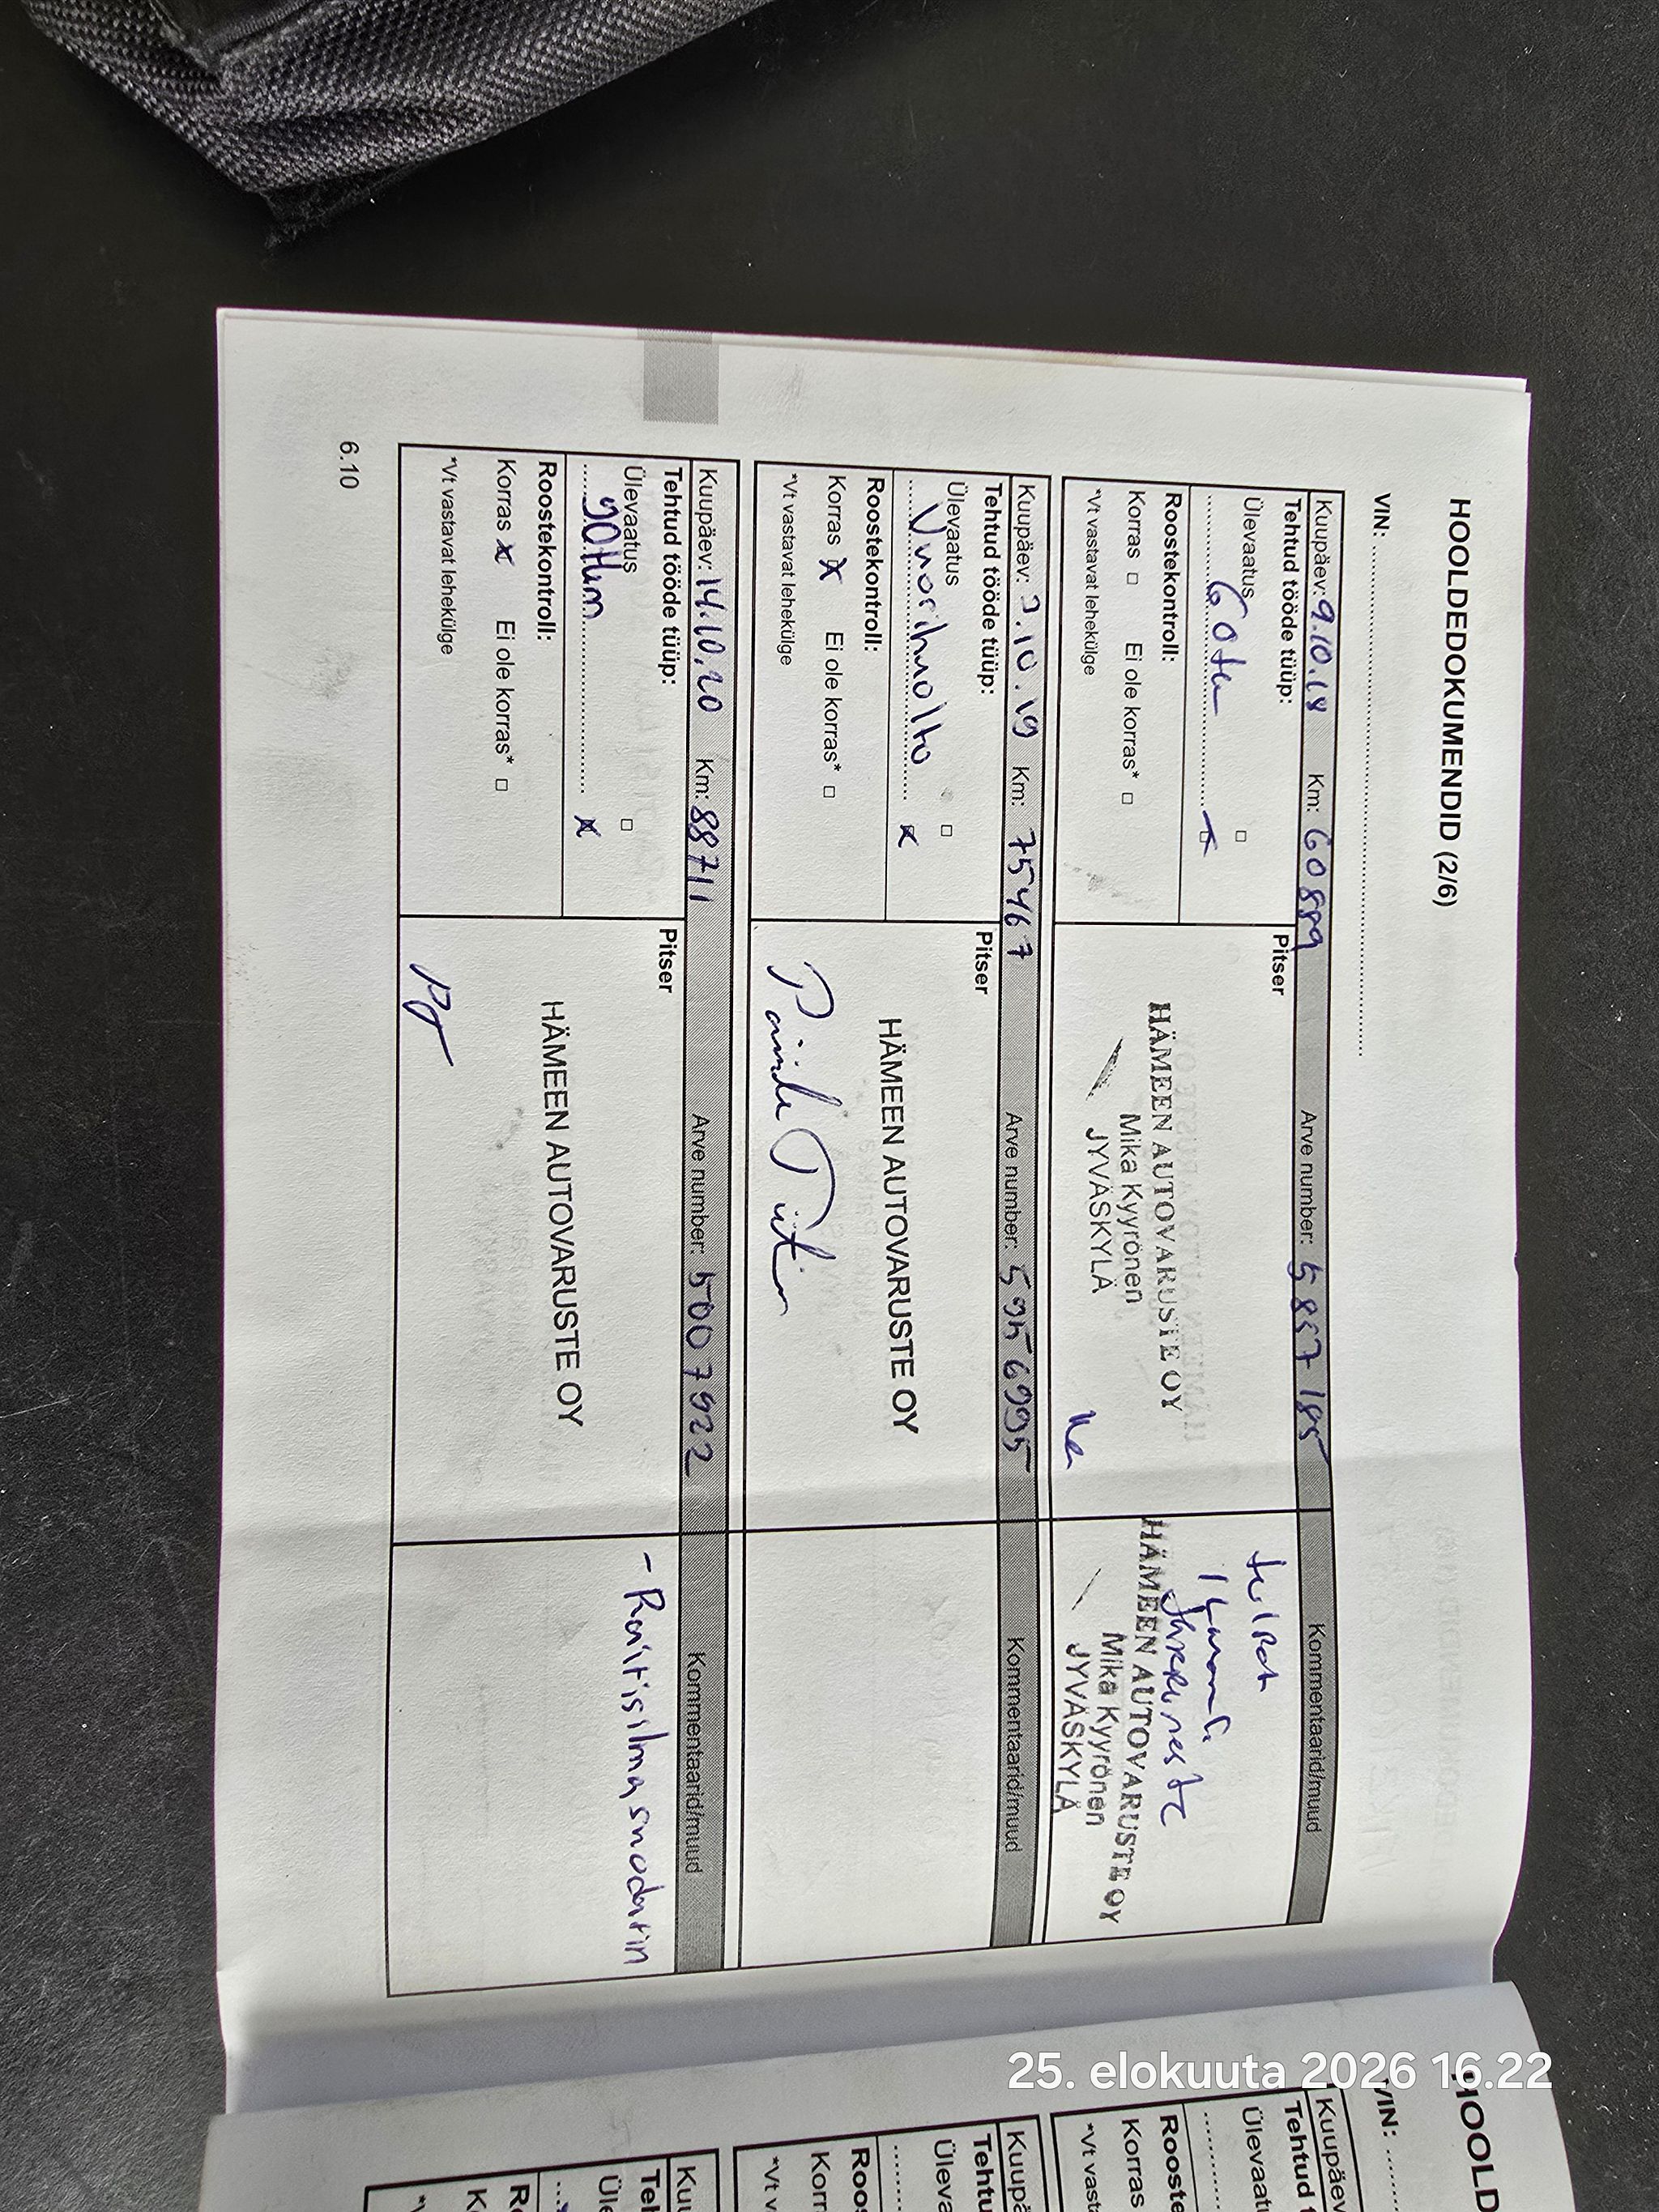 HOOLDEDOKUMENDID (2/6)
VIN: ........................
Kuupäev: 9.10.18 Km: 60889 Arve number: 5857185 Kommentaarid/muud
Tehtud tööde tüüp:
Ülevaatus □
60tkm
Roostekontroll:
Korras □ Ei ole korras* □
*Vt vastavat lehekülge
Pitser
HÄMEEN AUTOVARUSTE OY
Mika Kyyrönen
JYVÄSKYLÄ
HÄMEEN AUTOVARUSTE OY
Mika Kyyrönen
JYVÄSKYLÄ
Kuupäev: 2.10.19 Km: 75467 Arve number: 5956995 Kommentaarid/muud
Tehtud tööde tüüp:
Ülevaatus □
Vuosihuolto x
Roostekontroll:
Korras x Ei ole korras* □
*Vt vastavat lehekülge
Pitser
HÄMEEN AUTOVARUSTE OY
Kuupäev: 14.10.20 Km: 88711 Arve number: 5007922 Kommentaarid/muud
Tehtud tööde tüüp:
Ülevaatus □
90tkm x
Roostekontroll:
Korras x Ei ole korras* □
*Vt vastavat lehekülge
Pitser
HÄMEEN AUTOVARUSTE OY
- Raitisilmasuodatin
6.10
25. elokuuta 2026 16.22
HOOLD
VIN:
Kuupäev
Tehtud t
Ülevaatu
Rooste
Korras
*Vt vast
Kuupä
Tehtu
Üleva
Roos
Korr
*Vt v
Kuu
Teh
Üle